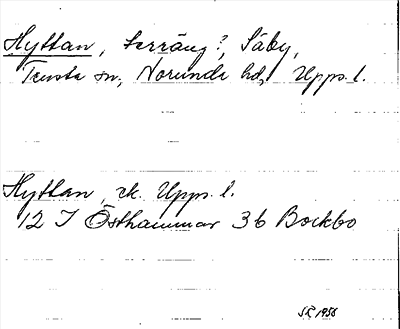 Hyttan, terräng?, Säby,
Tensta sn, Norunda hd, Upps. l.
Hyttan, ek. Upps. l.
12 I Östhammar 3b Bockbo
SR 1956